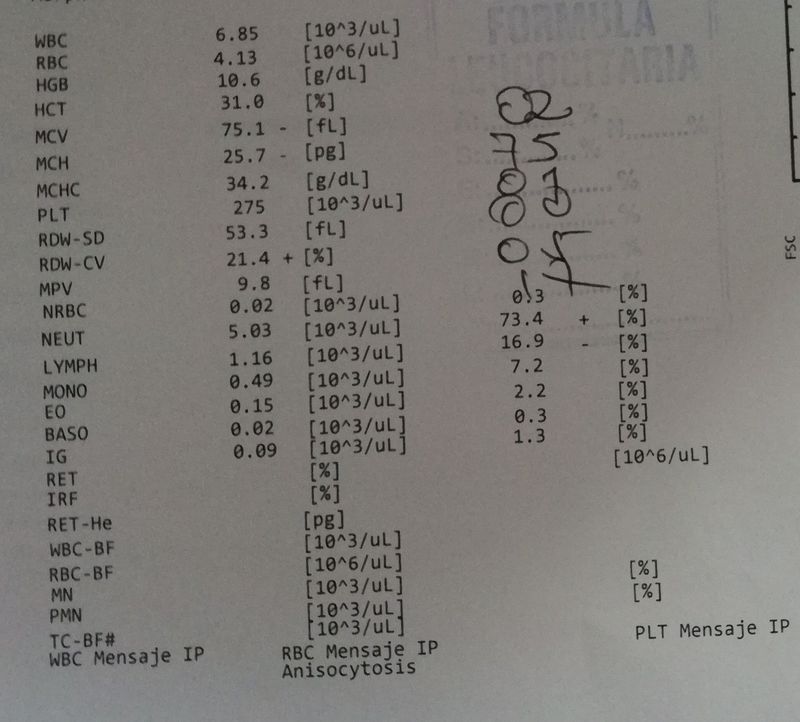 FORMULA
LEUCOCITARIA
WBC 6.85 [10^3/uL]
RBC 4.13 [10^6/uL]
HGB 10.6 [g/dL]
HCT 31.0 [%]
MCV 75.1 - [fL]
MCH 25.7 - [pg]
MCHC 34.2 [g/dL]
PLT 275 [10^3/uL]
RDW-SD 53.3 [fL]
RDW-CV 21.4 + [%]
MPV 9.8 [fL]
NRBC 0.02 [10^3/uL] 0.3 [%]
NEUT 5.03 [10^3/uL] 73.4 + [%]
LYMPH 1.16 [10^3/uL] 16.9 - [%]
MONO 0.49 [10^3/uL] 7.2 [%]
EO 0.15 [10^3/uL] 2.2 [%]
BASO 0.02 [10^3/uL] 0.3 [%]
IG 0.09 [10^3/uL] 1.3 [%]
RET [%] [10^6/uL]
IRF [%]
RET-He [pg]
WBC-BF [10^3/uL]
RBC-BF [10^6/uL]
MN [10^3/uL] [%]
PMN [10^3/uL] [%]
TC-BF# [10^3/uL]
WBC Mensaje IP RBC Mensaje IP PLT Mensaje IP
Anisocytosis
02
75
FSC